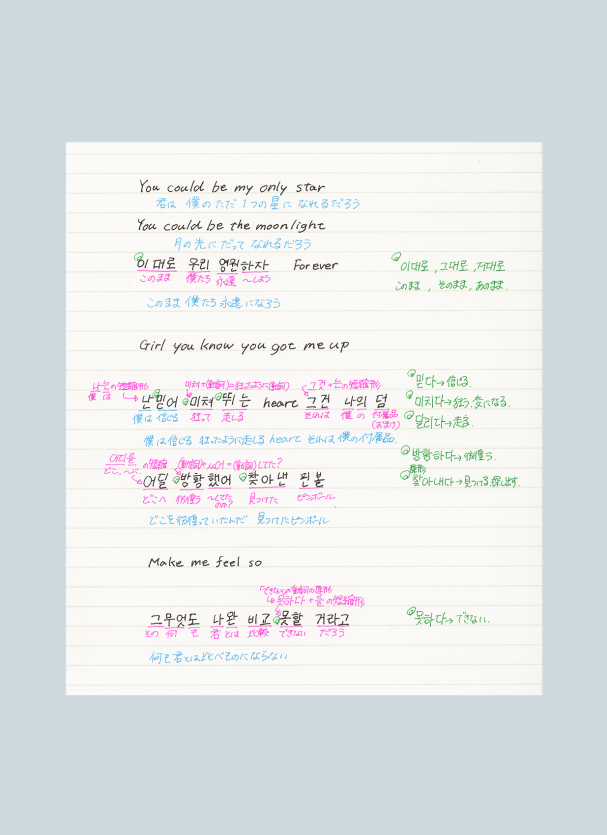 You could be my only star
君は 僕の ただ 1つの星に なれるだろう
You could be the moonlight
月の光に だって なれるだろう
이대로 우리 영원하자 Forever
このまま 僕たち 永遠 〜しよう
このまま 僕たち 永遠になろう
이대로, 그대로, 저대로
このまま, そのまま, あのまま.
Girl you know you got me up
나는の短縮形
僕は
미쳐+(動詞)=狂ったように(動詞)
그건+는の短縮形
난 믿어 미쳐 뛰는 heart 그건 나의 덤
僕は 信じる 狂って 走しる それは 僕の 付属品
(おまけ)
僕は信じる 狂ったように走しる heart それは 僕の付属品.
믿다→信じる.
미치다→狂う.変になる.
달리다→走る.
어디를 の短縮
どこ, 〜に
(動詞)+ㅆ어=(動詞)してた?
어딜 방황했어 찾아낸 핀볼
どこへ 彷徨う 〜してた
のか? 見つけた ピンボール
どこを彷徨っていたんだ 見つけたピンボール
방항하다→彷徨う.
原形
찾아내다→見つける,探し出す.
Make me feel so
「できない」の動詞の原形
↳못하다+을 の短縮形
그무엇도 나완 비교 못할 거라고
その 何 も 君とは 比較 できない だろう
何も君とはとくべものにならない
못하다→できない.